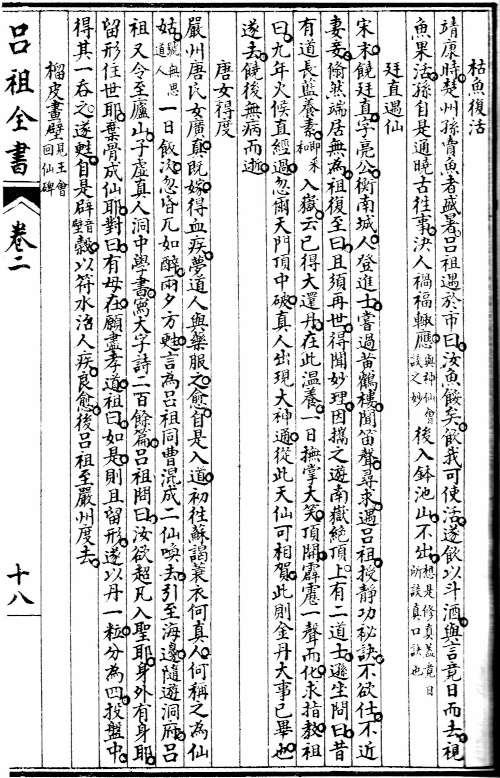 枯魚復活
靖康時楚州孫賣魚者盛暑呂祖過於市曰汝魚餒矣飲我可使活遂飲以斗酒與言竟日而去視
魚果活孫自是通曉古徃事決人禍福輙應與神仙會談之妙後入鉢池山不出想是修真葢竟日所談真口訣也
廷直遇仙
宋末饒廷直字亮公衡南城人登進士嘗過黃鶴樓聞笛聲尋求遇呂祖授靜功秘訣不欲仕不近
妻妾翛然端居無為祖復至曰且須再世得聞妙理因攜之遊南嶽絕頂上有二道士遜坐問曰昔
有道長藍養素即采和入嶽云已得大還丹在此溫養一日撫掌大笑頂開霹靂一聲而化求指教祖
曰九年火候直經過忽爾天門頂中破真人出現大神通從此天仙可相賀此則金丹大事已畢也
遂去饒後無病而逝
唐女得度
嚴州唐氏女廣真既嫁得血疾夢道人與藥服之愈自是入道初徃蘇謁蓑衣何真人何稱之為仙
姑號無思道人一日飯次忽昏兀如醉兩夕方甦言為呂祖同曹混成二仙喚去引至海邊隨遊洞府呂
祖又令至廬山子虛真人洞中學書寫大字詩二百餘篇呂祖問曰汝欲超凡入聖耶身外有身耶
留形住世耶棄骨成仙耶對曰有母在願盡孝道祖曰如是則且留形遂以丹一粒分為四投盤中
得其一吞之遂甦自是辟音壁穀以符水治人疾良愈後呂祖至嚴州度去
榴皮畫壁見王會回仙碑
呂祖全書
卷二
十八